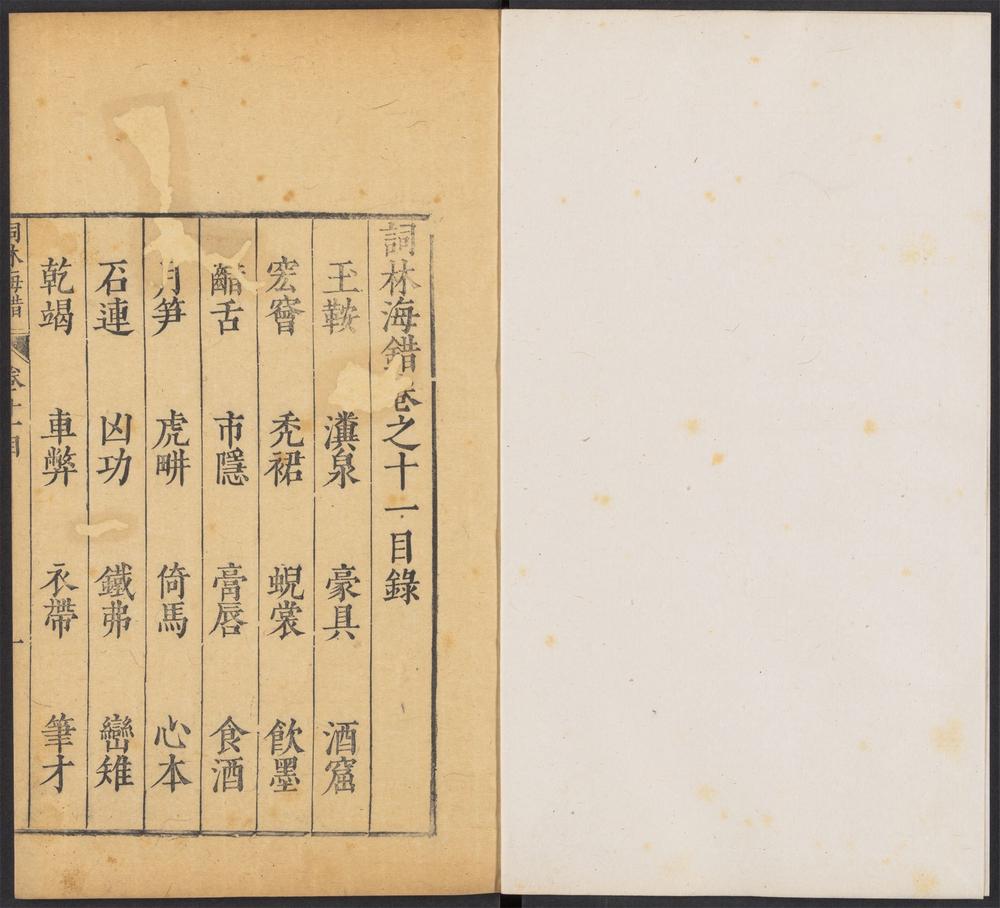 詞林海錯卷之十一目錄
玉鞍 瀵泉 豪具 酒窟
宏窨 禿裙 蜺裳 飲墨
齰舌 市隱 膏唇 食酒
月笋 虎畊 倚馬 心本
石連 凶功 鐵弗 巒雉
乾竭 車弊 衣帶 筆才
詞林海錯 卷十一目 一